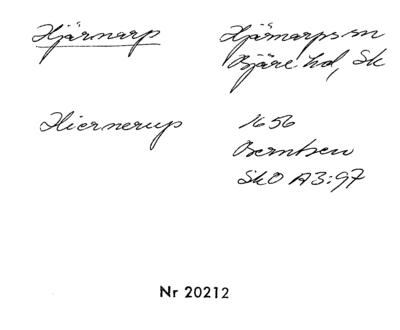 Hjärnarp
Hjärnarps sn
Bjäre hd, Sk
Hiernerup
1656
Berntsen
SkO A3:97
Nr 20212